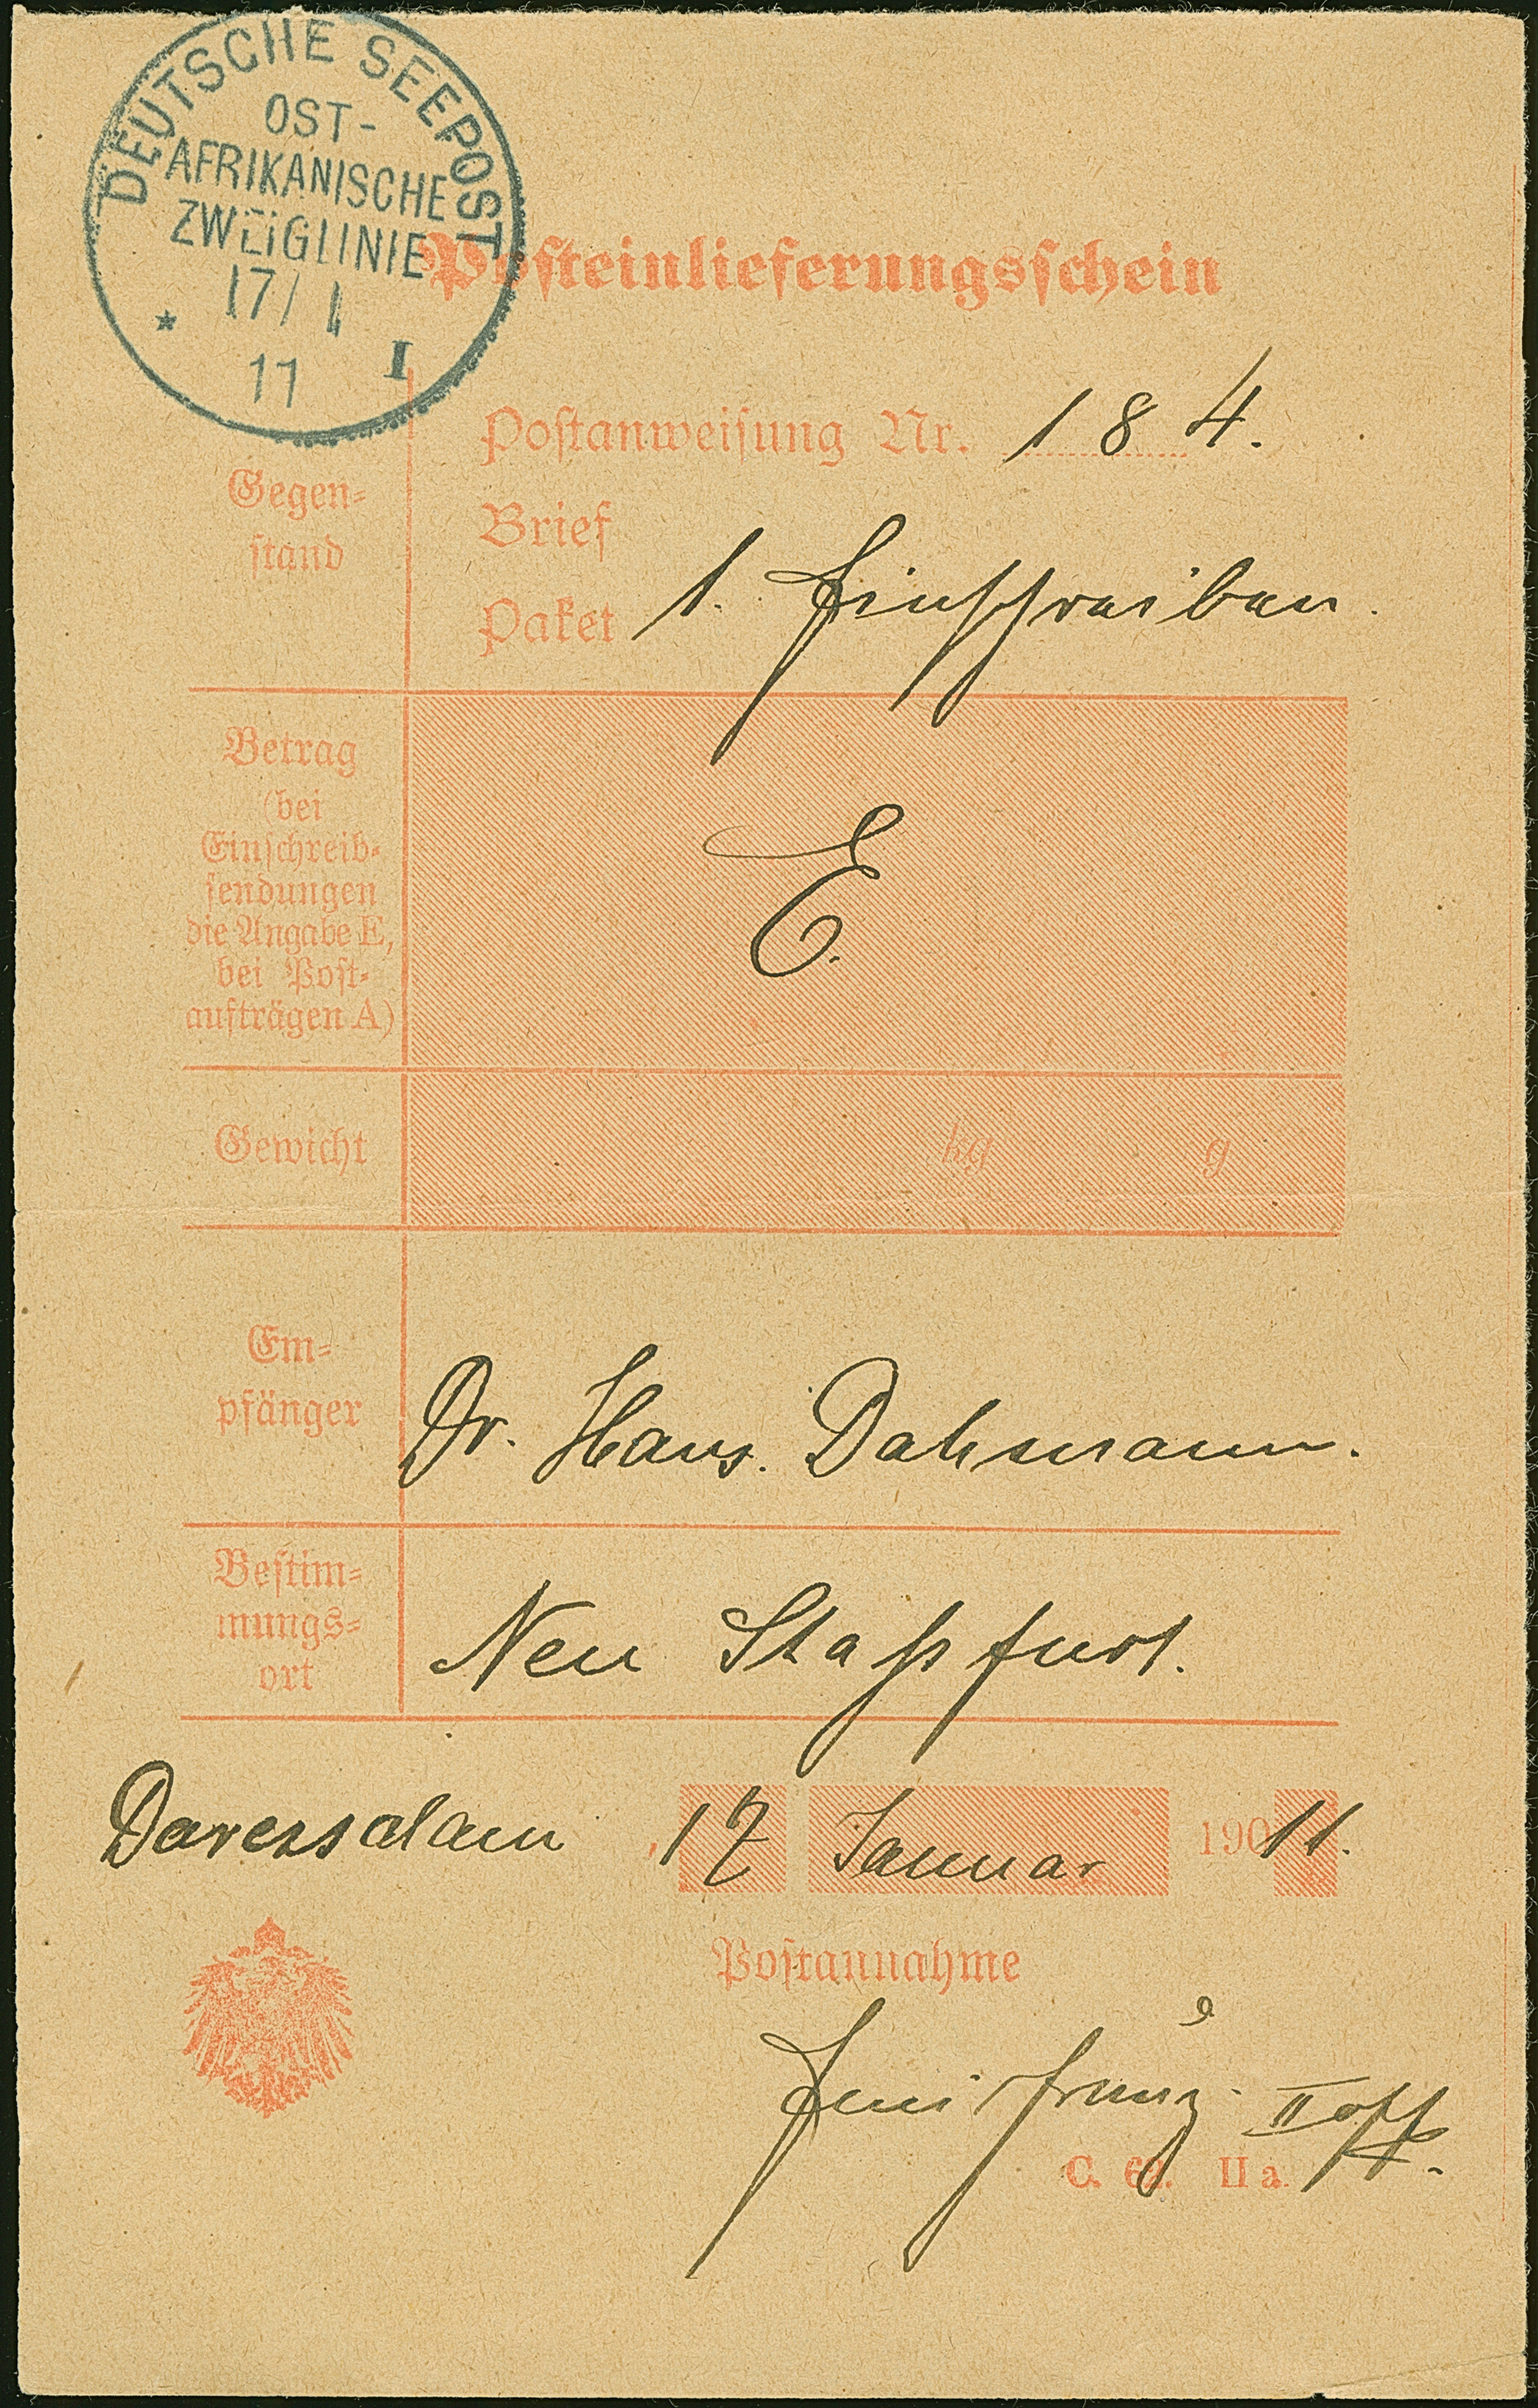 DEUTSCHE SEEPOST
OST-
AFRIKANISCHE
ZWEIGLINIE
17/1
11
* I
Posteinlieferungsschein
Gegen-
stand
Postanweisung Nr. 184.
Brief
Paket 1. Einschreiben.
Betrag
(bei
Einschreib-
sendungen
die Angabe E,
bei Post-
aufträgen A)
E.
Gewicht
kg g
Em-
pfänger
Dr. Hans. Dahmann.
Bestim-
mungs-
ort
Neu Staßfurt.
Daressalam, 17 Januar 190 11.
Postannahme
II Off.
C. 62. II a.